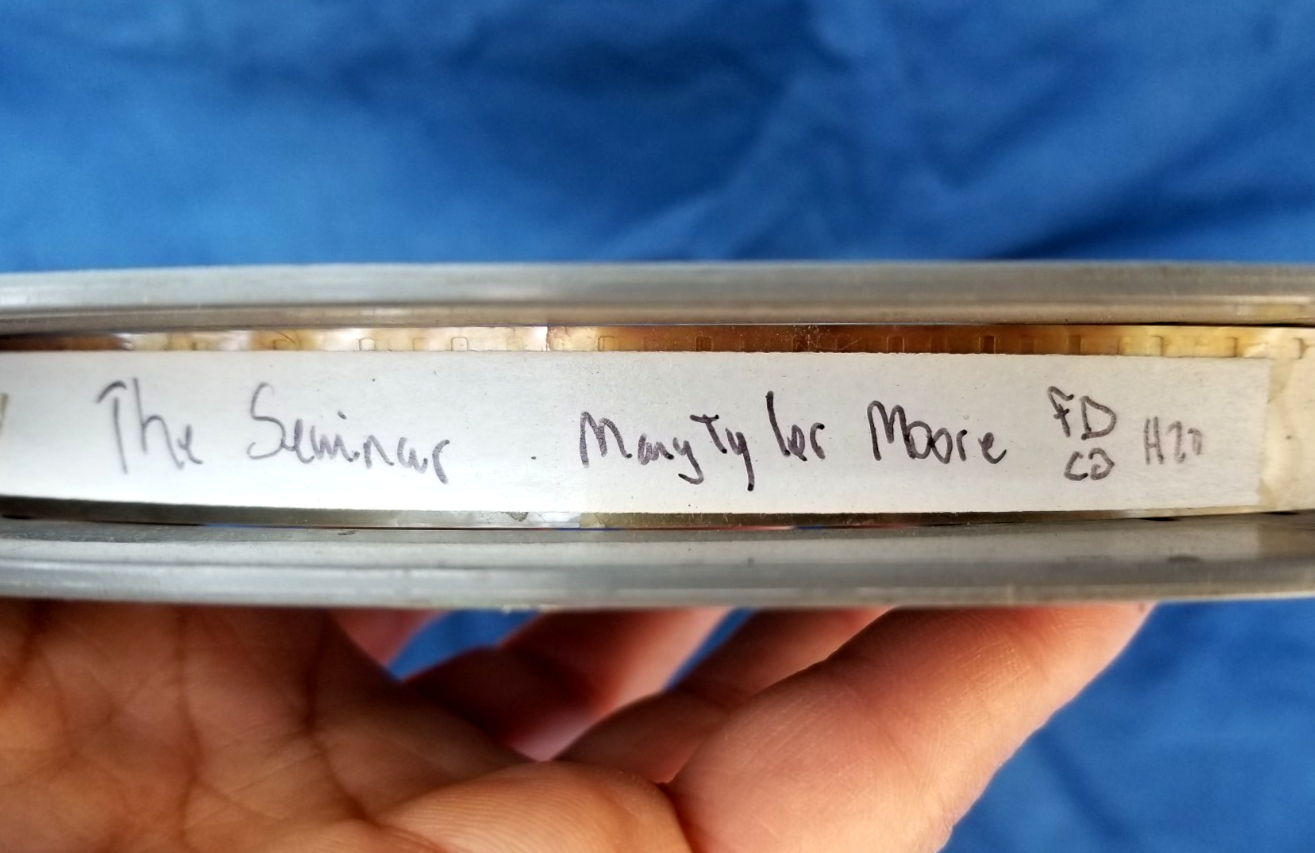 The Seminar Mary Tyler Moore FD H20
CO